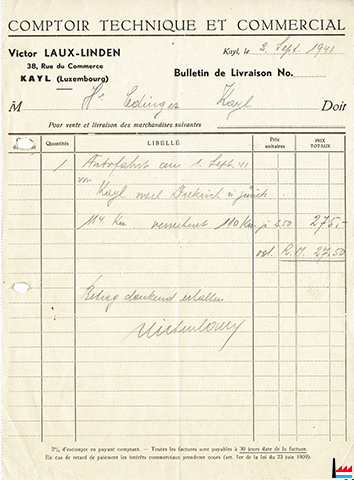 COMPTOIR TECHNIQUE ET COMMERCIAL
Victor LAUX-LINDEN
38, Rue du Commerce
KAYL (Luxembourg)
Kayl, le 2. Sept. 1941
Bulletin de Livraison No.
M Hr Edinger Kayl Doit
Pour vente et livraison des marchandises suivantes
Quantités LIBELLÉ Prix unitaires PRIX TOTAUX
1 Autofahrt am 1. Sept. 41
von
Kayl nach Diekirch u. zurück.
114 Km verrechnet 110 Km je 2.50 275,-
od. R.M. 27,50
Betrag dankend erhalten
2% d'escompte en payant comptant. — Toutes les factures sont payables à 30 jours date de la facture.
En cas de retard de payement les intérêts commerciaux prendront cours (art. 1er de la loi du 23 juin 1909).